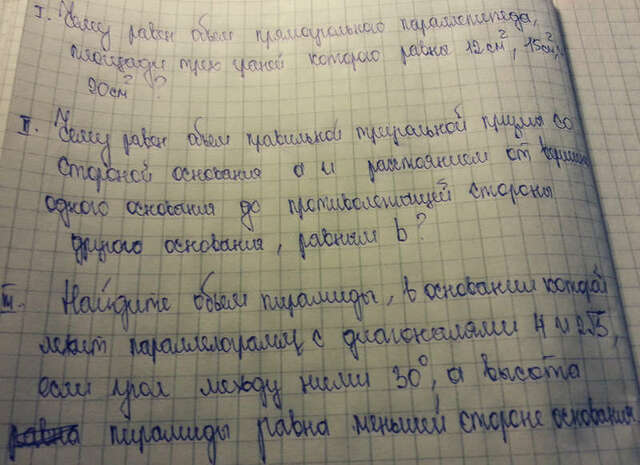 I. Чему равен объем прямоугольного параллелепипеда,
площади трех граней которого равны 12 см², 15 см²,
20 см²?
II. Чему равен объем правильной треугольной призмы со
стороной основания a и расстоянием от вершины
одного основания до противолежащей стороны
другого основания, равным b?
III. Найдите объем пирамиды, в основании которой
лежит параллелограмм с диагоналями 4 и 2√3,
если угол между ними 30°, а высота
пирамиды равна меньшей стороне основания.